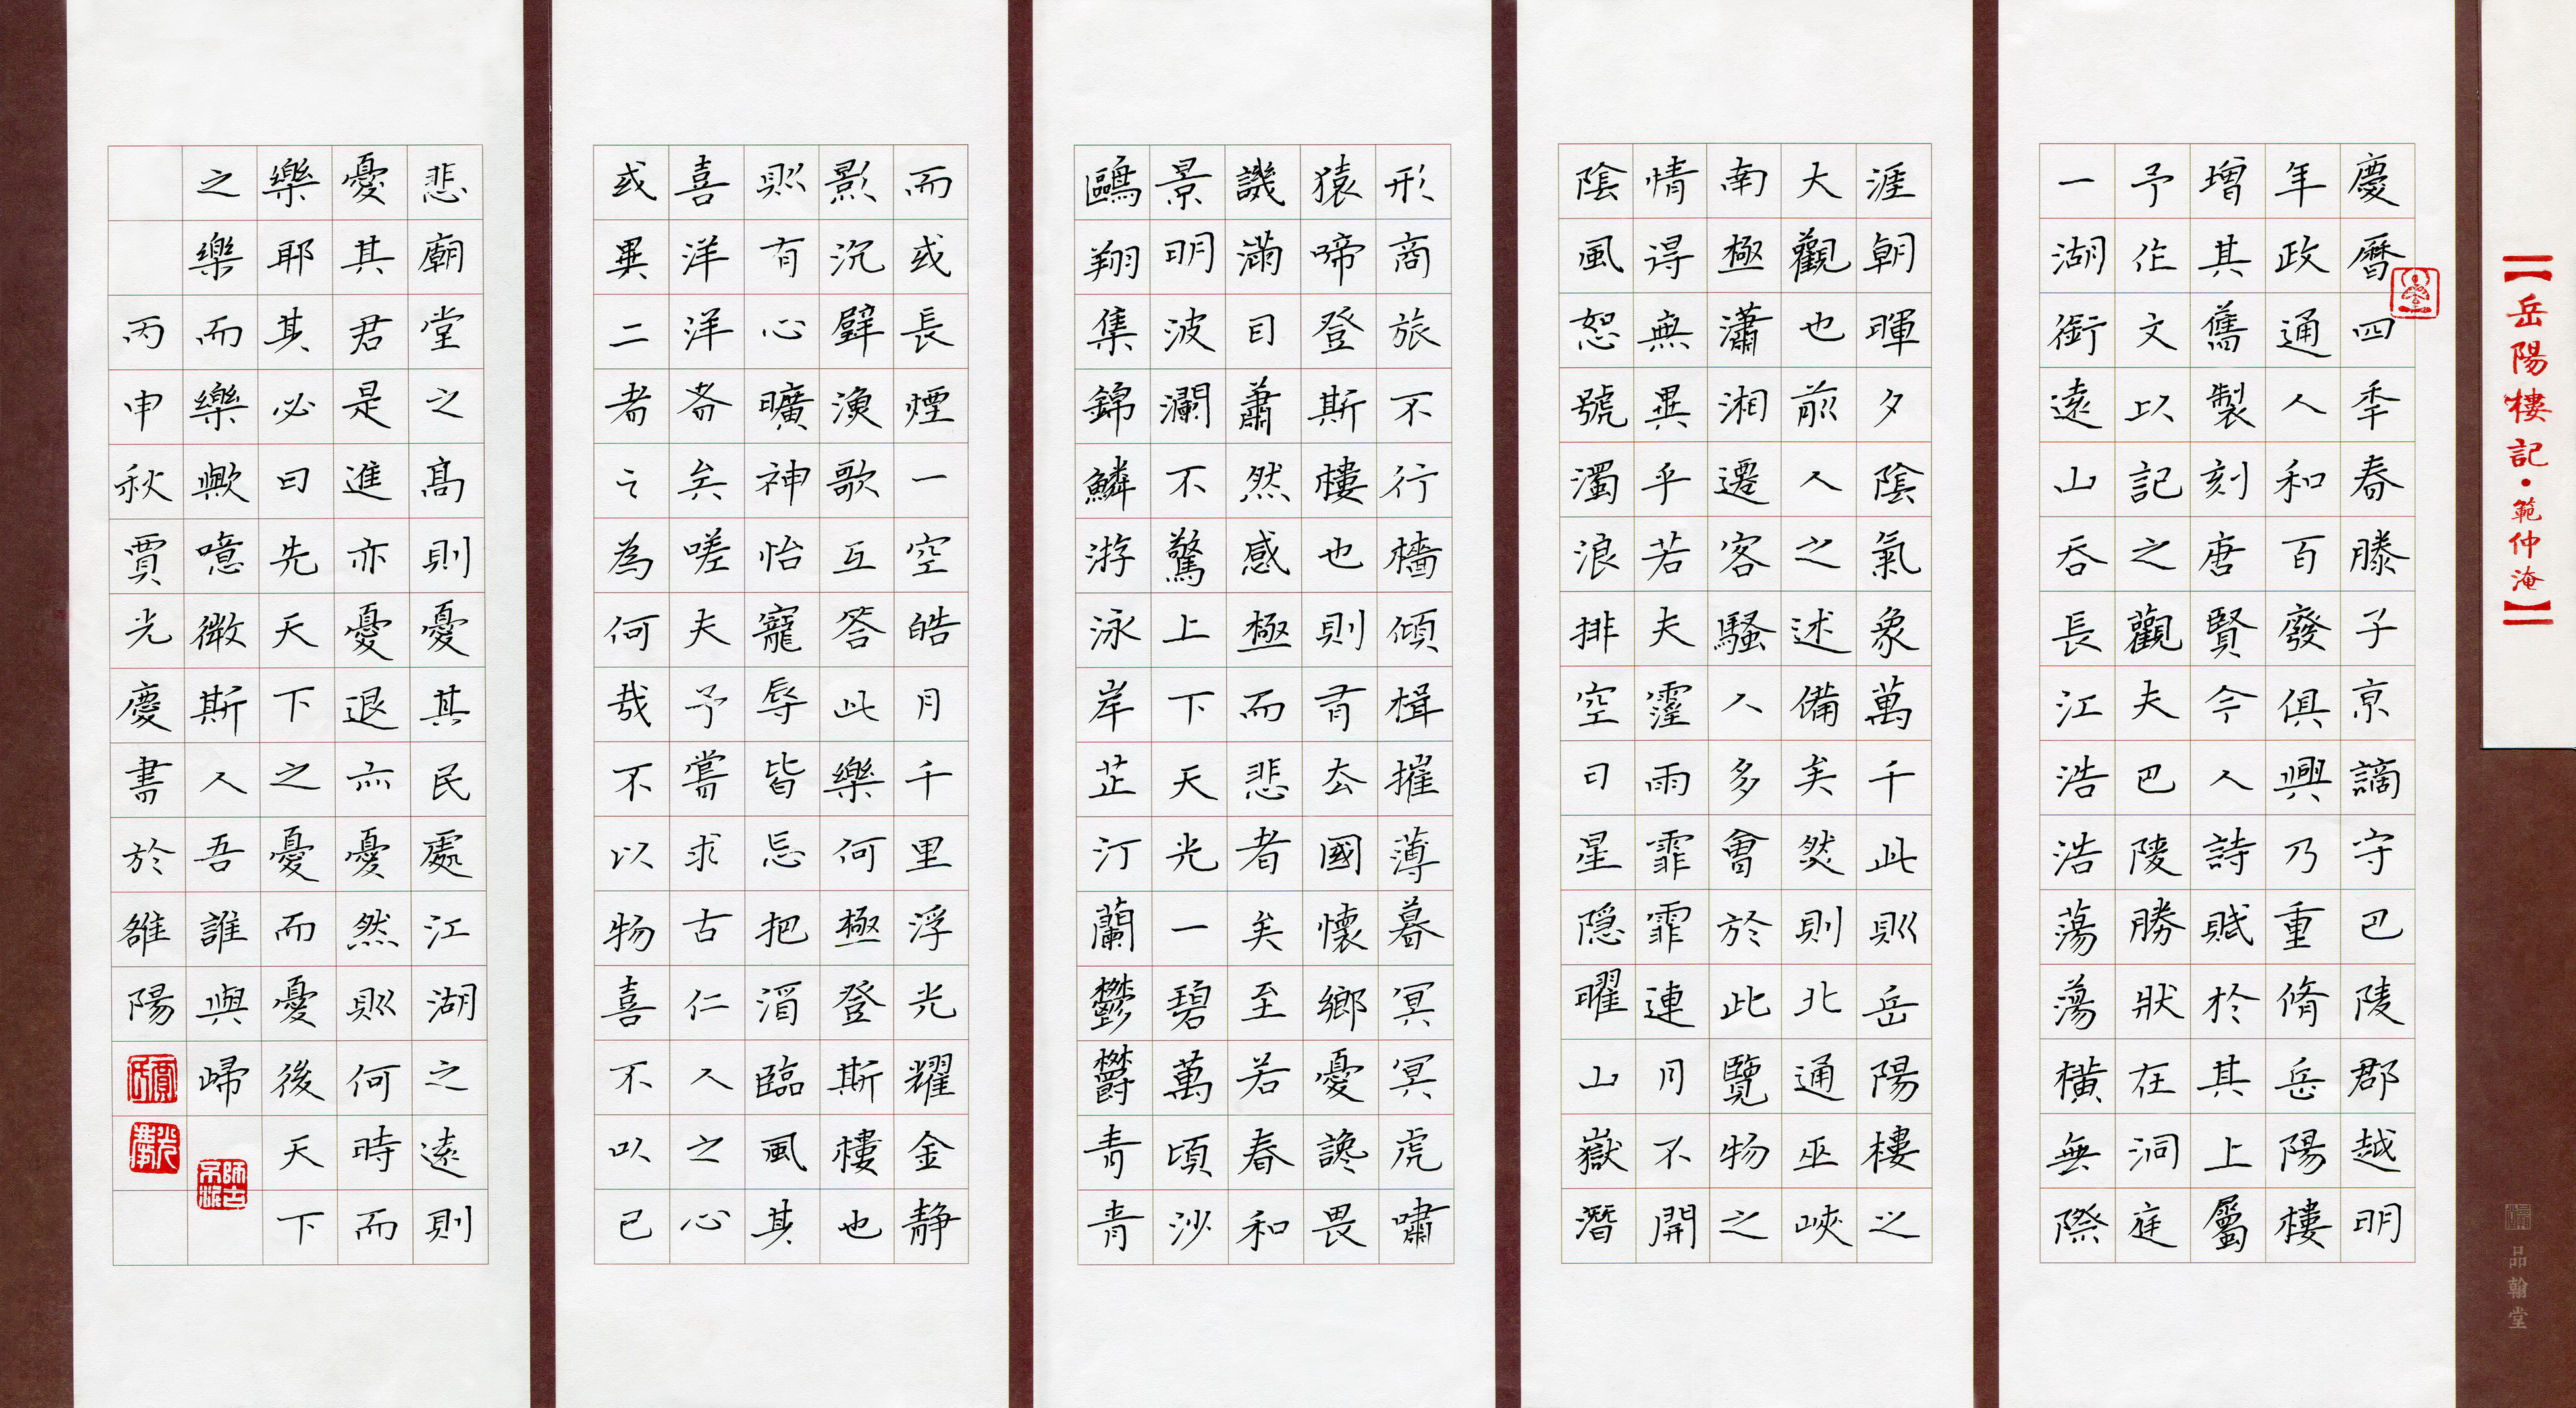 【岳陽樓記·範仲淹】
慶曆四秊春滕子京謫守巴陵郡越明
年政通人和百廢俱興乃重脩岳陽樓
增其舊製刻唐賢今人詩賦於其上屬
予作文以記之觀夫巴陵勝狀在洞庭
一湖銜遠山吞長江浩浩蕩蕩橫無際
涯朝暉夕陰氣象萬千此則岳陽樓之
大觀也前人之述備矣然則北通巫峽
南極瀟湘遷客騷人多會於此覽物之
情得無異乎若夫霪雨霏霏連月不開
陰風恕號濁浪排空日星隱曜山嶽潛
形商旅不行檣傾楫摧薄暮冥冥虎嘯
猿啼登斯樓也則有去國懷鄉憂讒畏
譏滿目蕭然感極而悲者矣至若春和
景明波瀾不驚上下天光一碧萬頃沙
鷗翔集錦鱗游泳岸芷汀蘭鬱鬱青青
而或長煙一空皓月千里浮光耀金静
影沉璧漁歌互答此樂何極登斯樓也
則有心曠神怡寵辱皆忘把酒臨風其
喜洋洋者矣嗟夫予嘗求古仁人之心
或異二者之為何哉不以物喜不以己
悲廟堂之高則憂其民處江湖之遠則
憂其君是進亦憂退亦憂然則何時而
樂耶其必曰先天下之憂而憂後天下
之樂而樂歟噫微斯人吾誰與歸
丙申秋賈光慶書於雒陽
賈氏
光慶
品翰堂